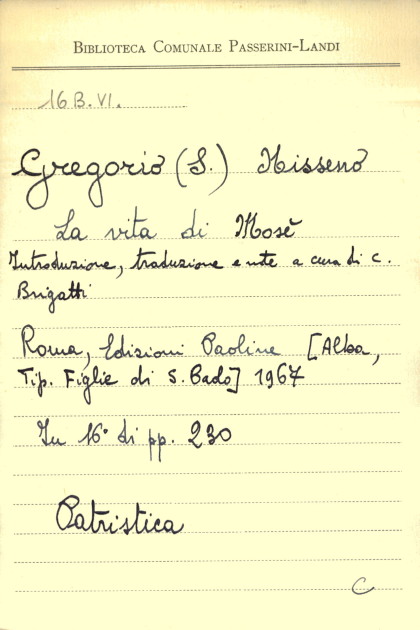 BIBLIOTECA COMUNALE PASSERINI-LANDI
16 B. VI.
Gregorio (S.) Nisseno
La vita di Mosè
Introduzione, traduzione e note a cura di C.
Brigatti
Roma, Edizioni Paoline [Alba,
Tip. Figlie di S. Paolo] 1967
In 16° di pp. 230
Patristica
C